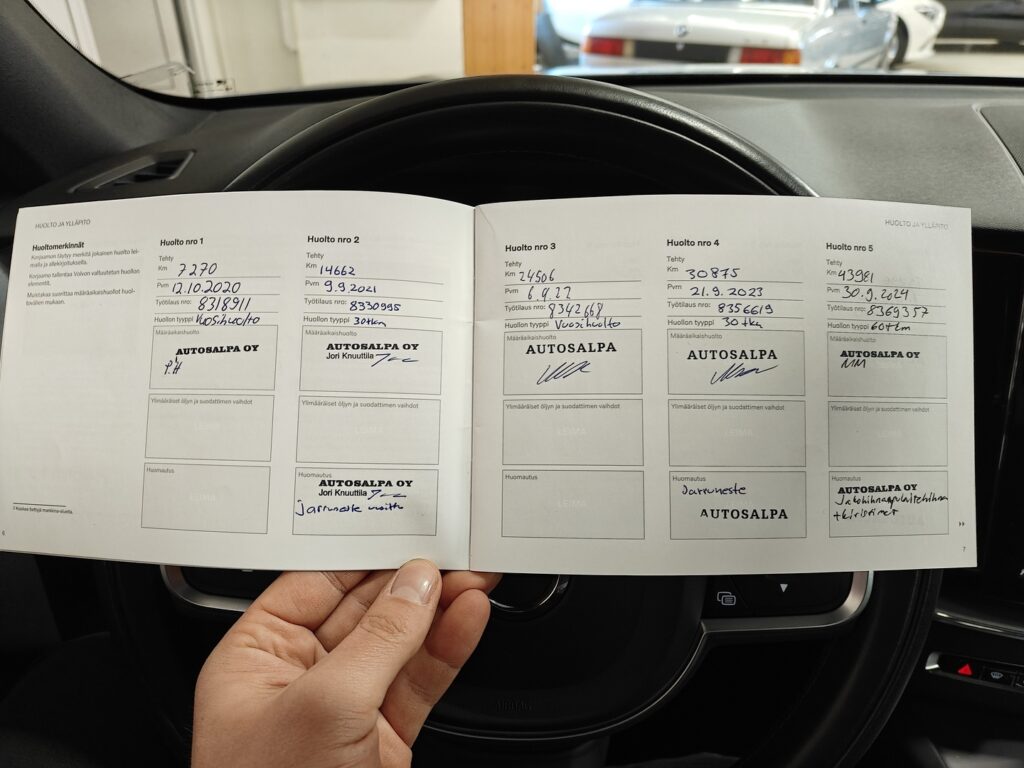 HUOLTO JA YLLÄPITO
Huoltomerkinnät
Korjaamon täytyy merkitä jokainen huolto lei-
malla ja allekirjoituksella.
Korjaamo tallentaa Volvon valtuutetun huollon
elementit.
Muistakaa suorittaa määräaikaishuollot huol-
tovälien mukaan.
Huolto nro 1
Tehty
Km 7270
Pvm 12.10.2020
Työtilaus nro: 8318911
Huollon tyyppi Vuosihuolto
Määräaikaishuolto
AUTOSALPA OY
P.H
Ylimääräiset öljyn ja suodattimen vaihdot
LEIMA
Huomautus
LEIMA
Huolto nro 2
Tehty
Km 14662
Pvm 9.9.2021
Työtilaus nro: 8330995
Huollon tyyppi 30tkm
Määräaikaishuolto
AUTOSALPA OY
Jori Knuuttila
Ylimääräiset öljyn ja suodattimen vaihdot
LEIMA
Huomautus
AUTOSALPA OY
Jori Knuuttila
jarruneste
6
HUOLTO JA YLLÄPITO
Huolto nro 3
Tehty
Km 24506
Pvm 6.9.22
Työtilaus nro: 8342668
Huollon tyyppi Vuosihuolto
Määräaikaishuolto
AUTOSALPA
Ylimääräiset öljyn ja suodattimen vaihdot
LEIMA
Huomautus
LEIMA
Huolto nro 4
Tehty
Km 30875
Pvm 21.9.2023
Työtilaus nro: 8356619
Huollon tyyppi 30tkm
Määräaikaishuolto
AUTOSALPA
Ylimääräiset öljyn ja suodattimen vaihdot
LEIMA
Huomautus
Jarruneste
AUTOSALPA
Huolto nro 5
Tehty
Km 43981
Pvm 30.9.2024
Työtilaus nro: 8369357
Huollon tyyppi 60tkm
Määräaikaishuolto
AUTOSALPA OY
MM
Ylimääräiset öljyn ja suodattimen vaihdot
LEIMA
Huomautus
AUTOSALPA OY
+kiristimet
7